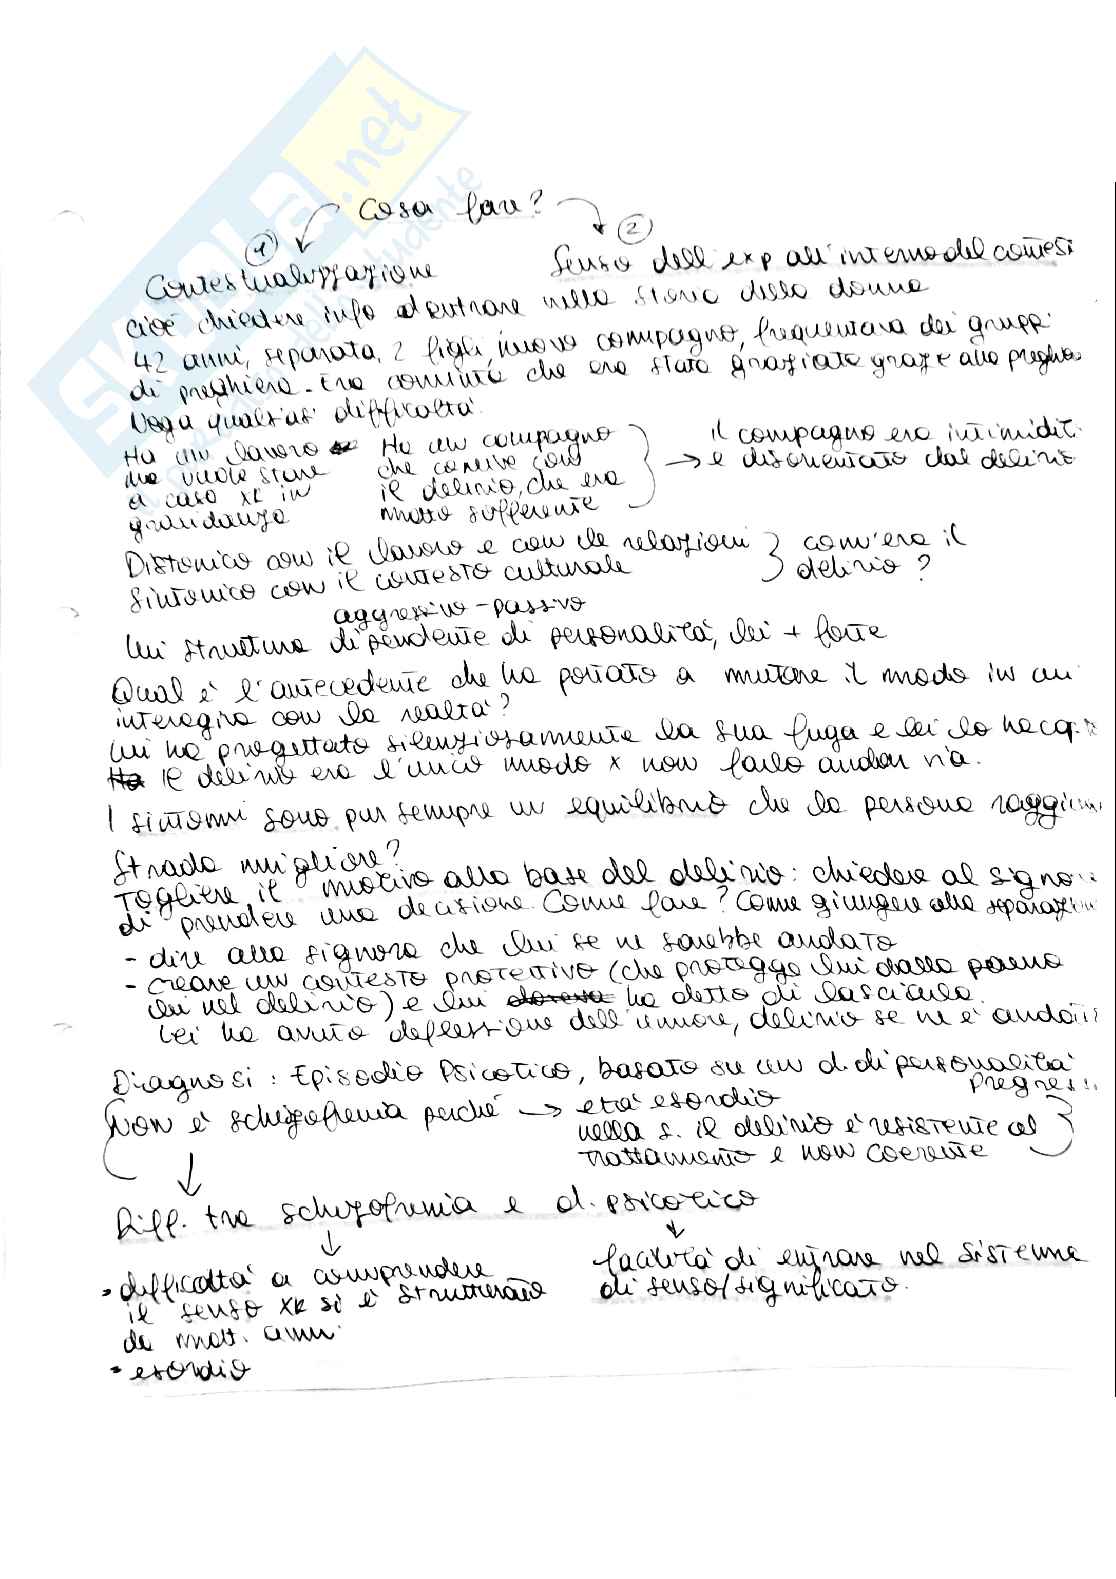 SKUOLA.net
Cosa fare?
1
2
Contestualizzazione
Senso dell'exp all'interno del contest
cioè chiedere info addentrare nella storia della donna
42 anni, separata, 2 figli, nuovo compagno, frequentava dei gruppi
di preghiera. Era convinta che era stata graziata grazie alla preghie
Nega qualsiasi difficoltà
Ha un lavoro
ma vuole stare
a casa xk in
gravidanza
Ha un compagno
che convive con
il delirio, che era
molto sofferente
il compagno era intimidit
e disorientato dal delirio
Distonico con il lavoro e con le relazioni
Sintonico con il contesto culturale
com'era il
delirio?
aggressivo-passivo
lui struttura dipendente di personalità, lei + forte
Qual è l'antecedente che ha portato a mutare il modo in cui
interagiva con la realtà?
lui ha progettato silenziosamente la sua fuga e lei lo ha cap
Ha il delirio era l'unico modo x non farlo andar via.
I sintomi sono pur sempre un equilibrio che la persona raggiun
Strada migliore?
Togliere il motivo alla base del delirio: chiedere al signo
di prendere una decisione. Come fare? Come giungere alla separazion
- dire alla signora che lui se ne sarebbe andato
- creare un contesto protettivo (che protegge lui dalla paura
lei nel delirio) e lui doveva ha detto di lasciarla.
Lei ha avuto deflessione dell'umore, delirio se ne è andat
Diagnosi: Episodio Psicotico, basato su un d. di personalità
pregres
Non è schizofrenia perché → età esordio
nella s. il delirio è resistente al
trattamento e non coerente
Diff. tra schizofrenia e d. psicotico
- difficoltà a comprendere
il senso xk si è strutturato
da molt. anni.
- esordio
facilità di entrare nel sistema
di senso/significato.